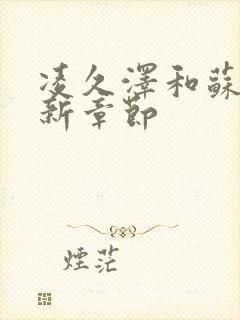 凌久澤和蘇
新章節
煙茫